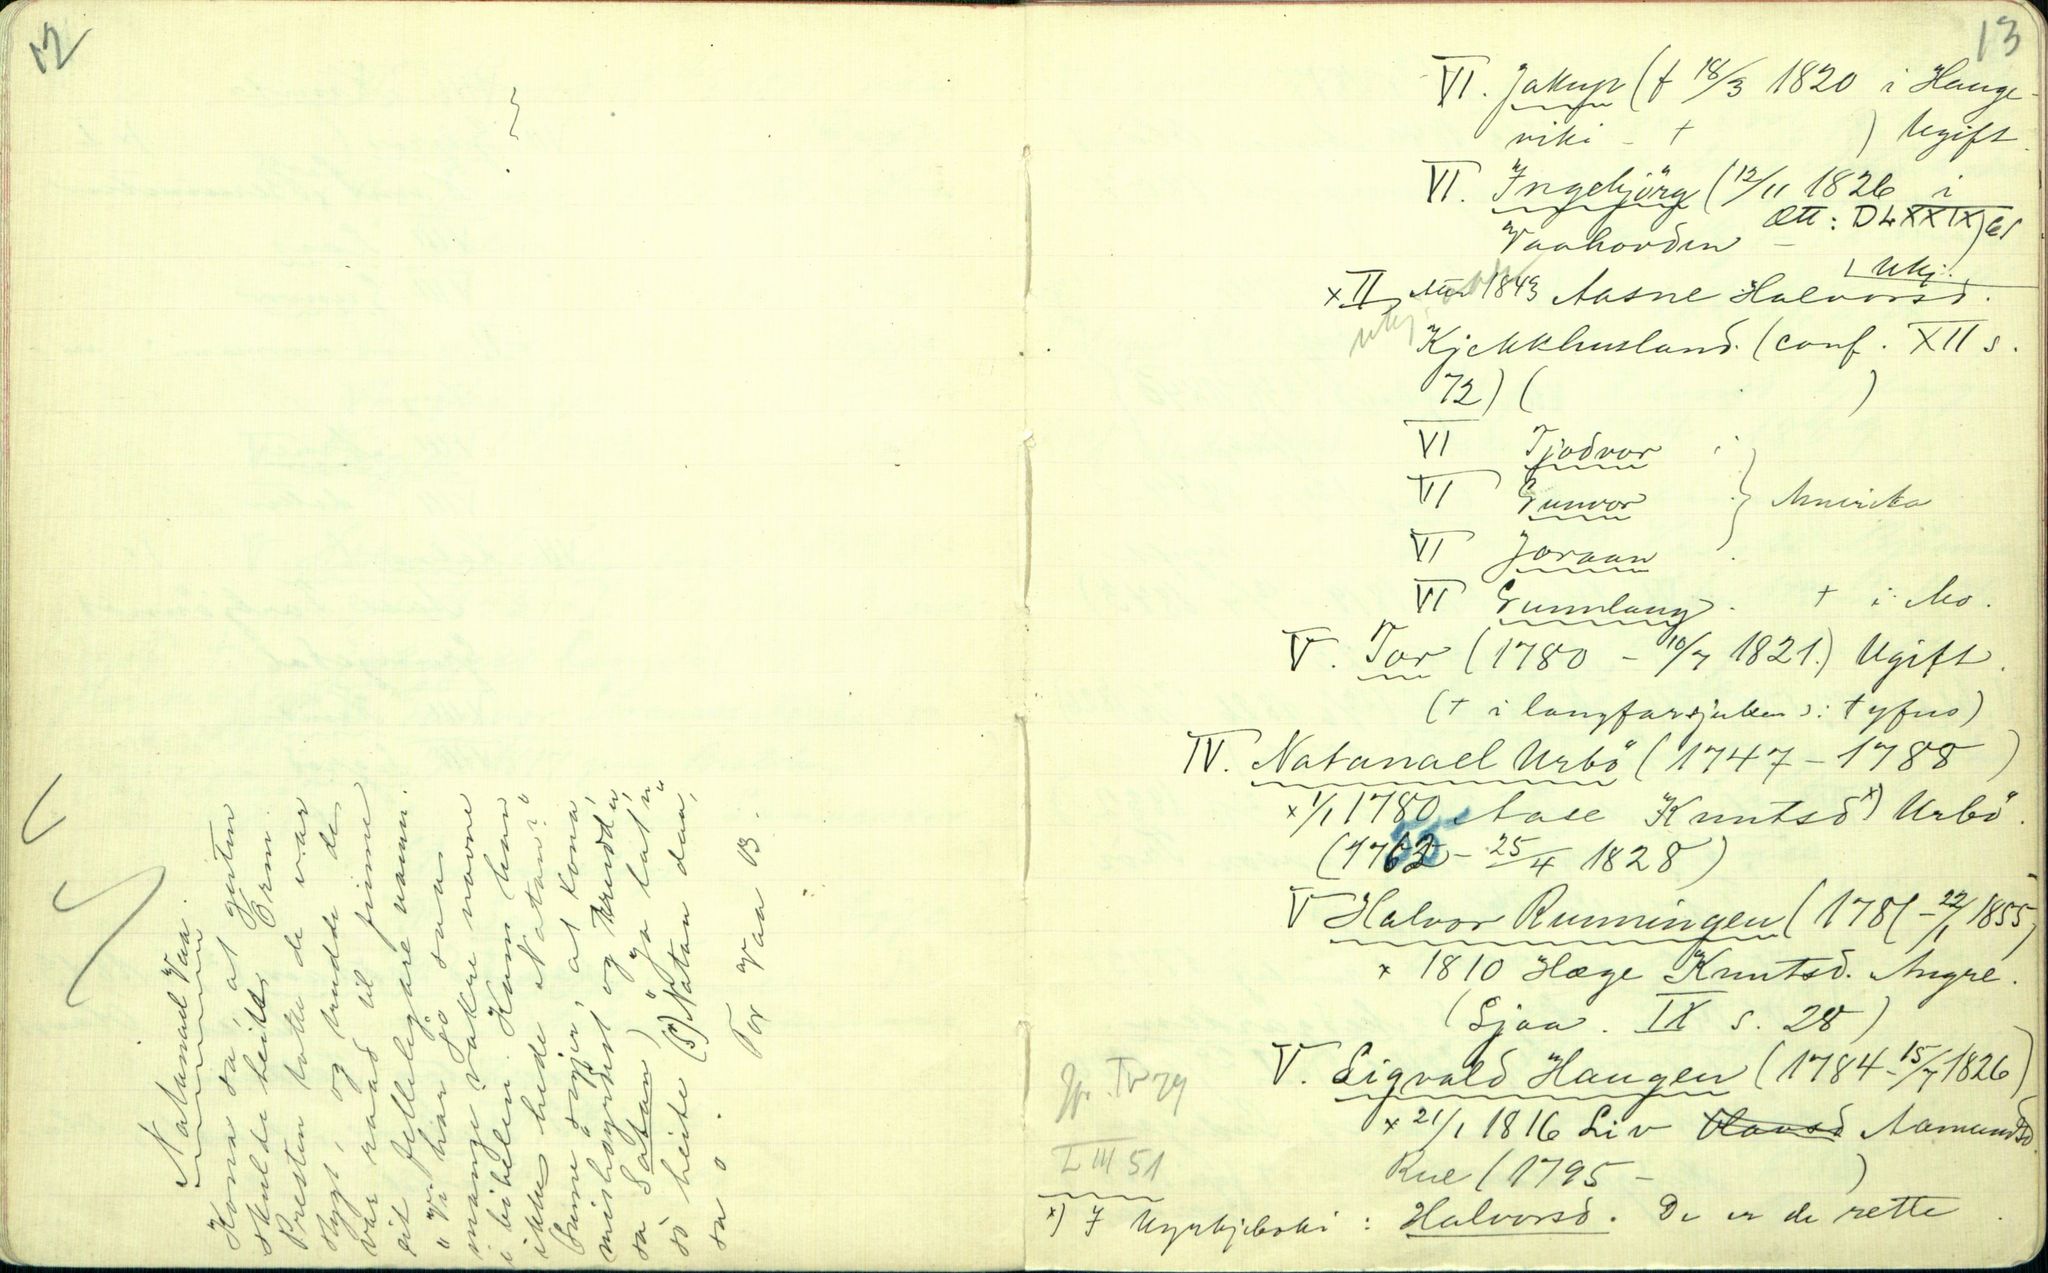 12
Natanael Vaa.
Kona sa, at guten
skulde heite Orm.
Presten totte de var
stygt, og trudde de
var raad til finne
eit felelegare namn.
"Vi har jo saa
mange vakre navne
i bibelen. Kan han
ikke hede Natan?"
(hune søgjer, at kona
mishøyrdest og trudde 'n
sa Satan) "Ja lat 'n
så heite (s) Natan daa,"
sa o.
Tor Vaa B.
13
VI. Jakup (f 18/3 1820 i Hauge-
viki - † ) Ugift.
VI. Ingebjörg (12/11 1826 i
Ætt: DLXXIX, 61
Vaahovden
Ukj.
x II 1843 Aasne Halvorsd.
Kjekkhusland. (conf. XII s.
72) ( )
VI Tjodvor
VI Gunvor } Amerika
VI Joraan
VI Gunnlaug. † i Mo.
V. Tor (1780 - 10/7 1821.) Ugift.
(† i langfarsjuken: tyfus)
IV. Natanael Urbö (1747 - 1788 )
x 1/1 1780 Aase Knutsd x) Urbö.
(1762 - 25/4 1828)
V Halvor Runningen (1781 - 22/1 1855)
x 1810 Hæge Knutsd. Angre.
(Sjaa. IX s. 28)
V. Sigvald Haugen (1784 - 15/7 1826)
x 21/1 1816 Liv Olavsd Aamundsd.
Rue (1795 - )
IV 79
LIII 51
x) I Kyrkjeboki: Halvorsd. De er de rette.